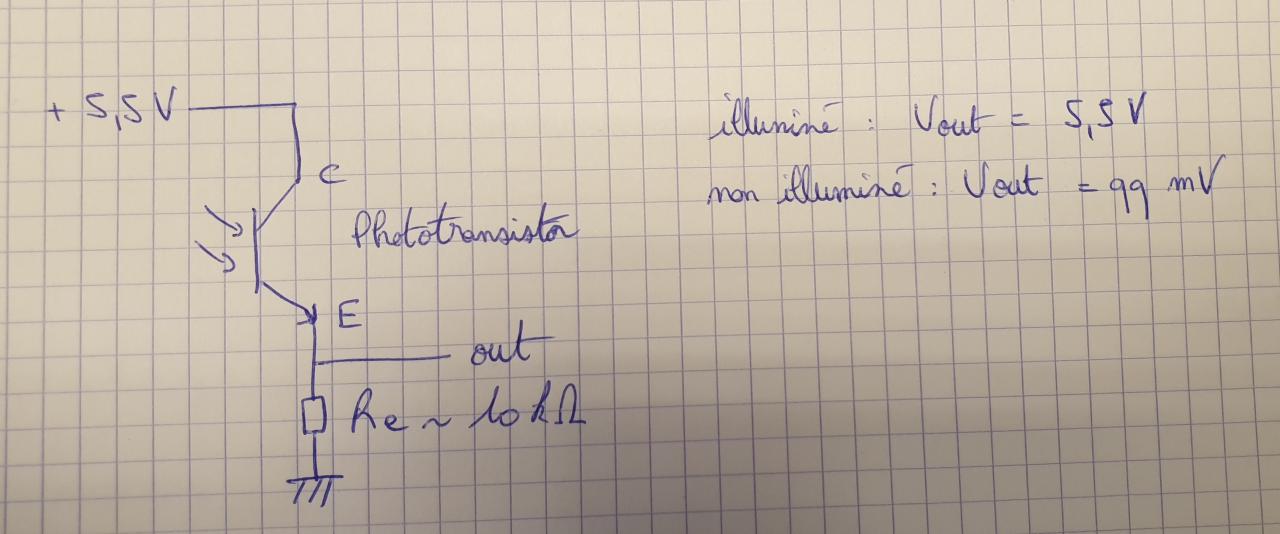 + 5,5V
C
Phototransistor
E
out
Re ~ 10kΩ
illuminé : Vout = 5,5 V
non illuminé : Vout = 99 mV